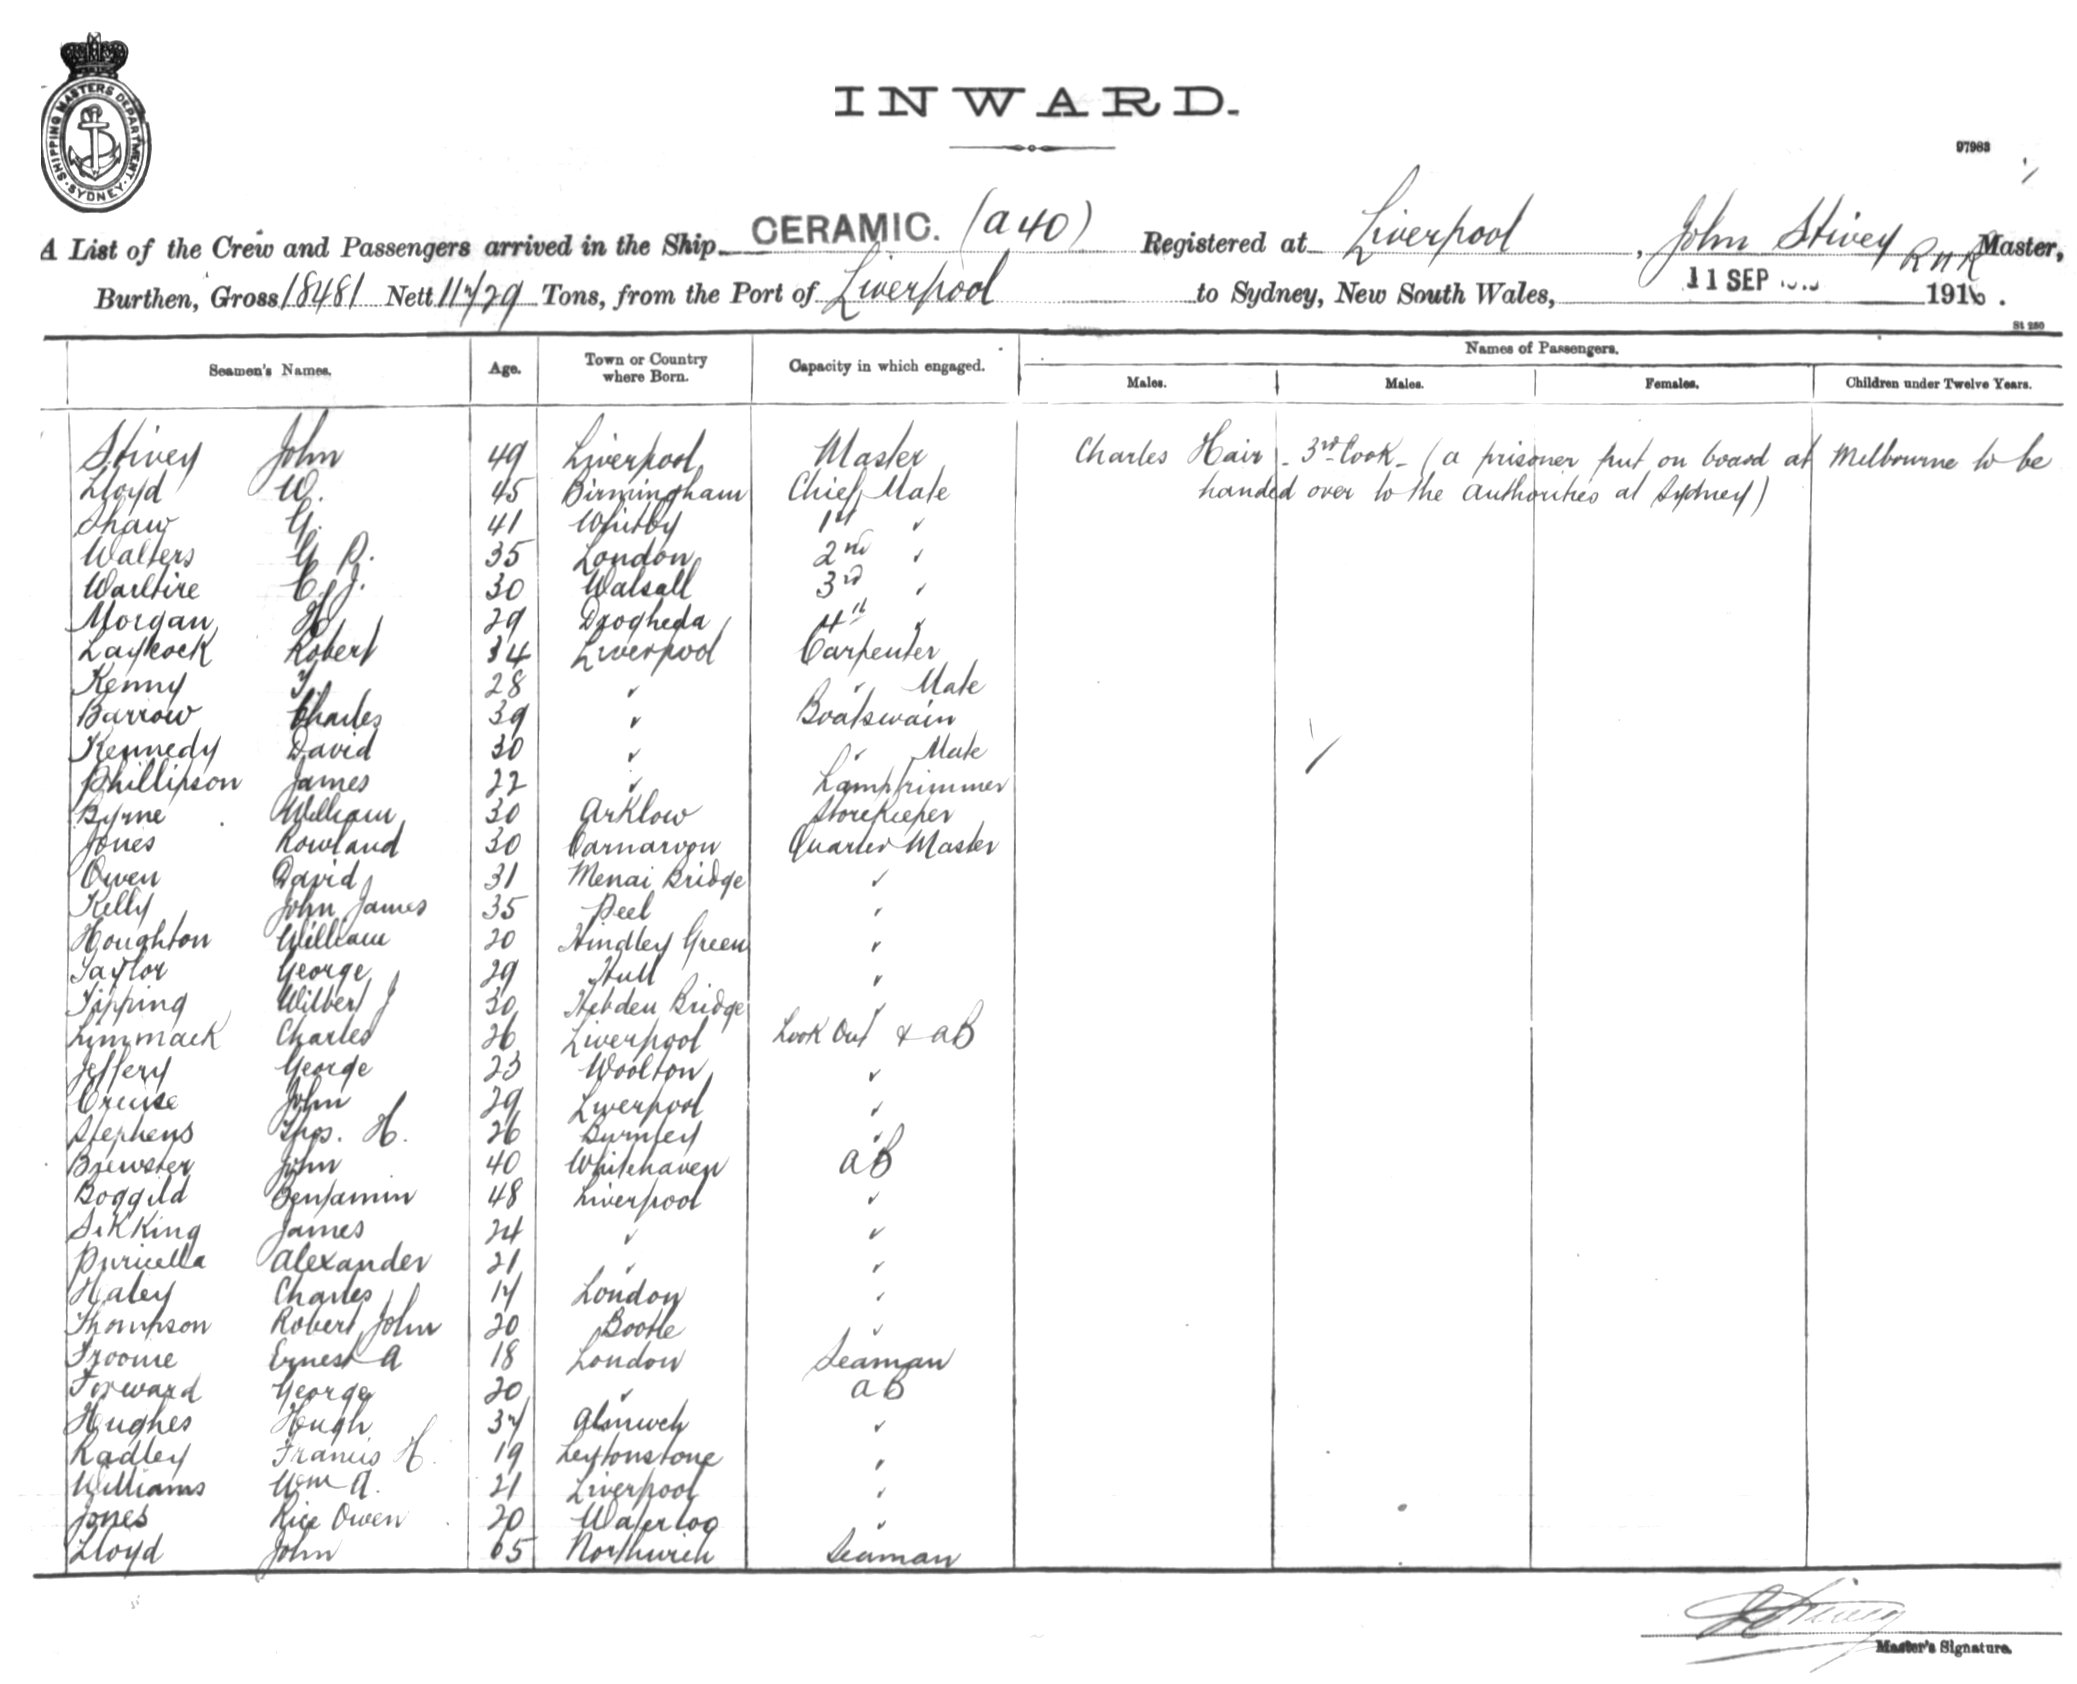 SHIPPING MASTERS DEPARTMENT. SYDNEY.
INWARD.
97983
A List of the Crew and Passengers arrived in the Ship CERAMIC. (A40) Registered at Liverpool, John Stivey RNR Master,
Burthen, Gross 18481 Nett 11729 Tons, from the Port of Liverpool to Sydney, New South Wales, 11 SEP 1916.
St 250
Seamen's Names. Age. Town or Country where Born. Capacity in which engaged. Names of Passengers.
Males. Males. Females. Children under Twelve Years.
Stivey John 49 Liverpool Master Charles Hair - 3rd Cook - (a prisoner put on board at Melbourne to be
Lloyd W. 45 Birmingham Chief Mate handed over to the authorities at Sydney)
Shaw G. 41 Whitby 1st "
Walters G R. 35 London 2nd "
Warltire C. J. 30 Walsall 3rd "
Morgan H 29 Drogheda 4th "
Laycock Robert 34 Liverpool Carpenter
Kenny T. 28 " " Mate
Barrow Charles 39 " Boatswain
Kennedy David 30 " " Mate
Phillipson James 22 " Lamptrimmer
Byrne William 30 Arklow Storekeeper
Jones Rowland 30 Carnarvon Quarter Master
Owen David 31 Menai Bridge "
Kelly John James 35 Peel "
Houghton William 20 Hindley Green "
Taylor George 29 Hull "
Tipping Wilbert J 30 Hebden Bridge "
Limmack Charles 26 Liverpool Look Out & AB
Jeffery George 23 Woolton "
Cruise John 29 Liverpool "
Stephens Thos. H. 26 Burnley "
Brewster John 40 Whitehaven AB
Boggild Benjamin 48 Liverpool "
Sikking James 24 " "
Puricella Alexander 21 " "
Haley Charles 17 London "
Thompson Robert John 20 Bootle "
Froome Ernest A 18 London Seaman
Forward George 20 " AB
Hughes Hugh 37 Almwch "
Radley Francis H. 19 Leytonstone "
Williams Wm A. 21 Liverpool "
Jones Rice Owen 20 Waterloo "
Lloyd John 65 Northwich Seaman
Master's Signature.